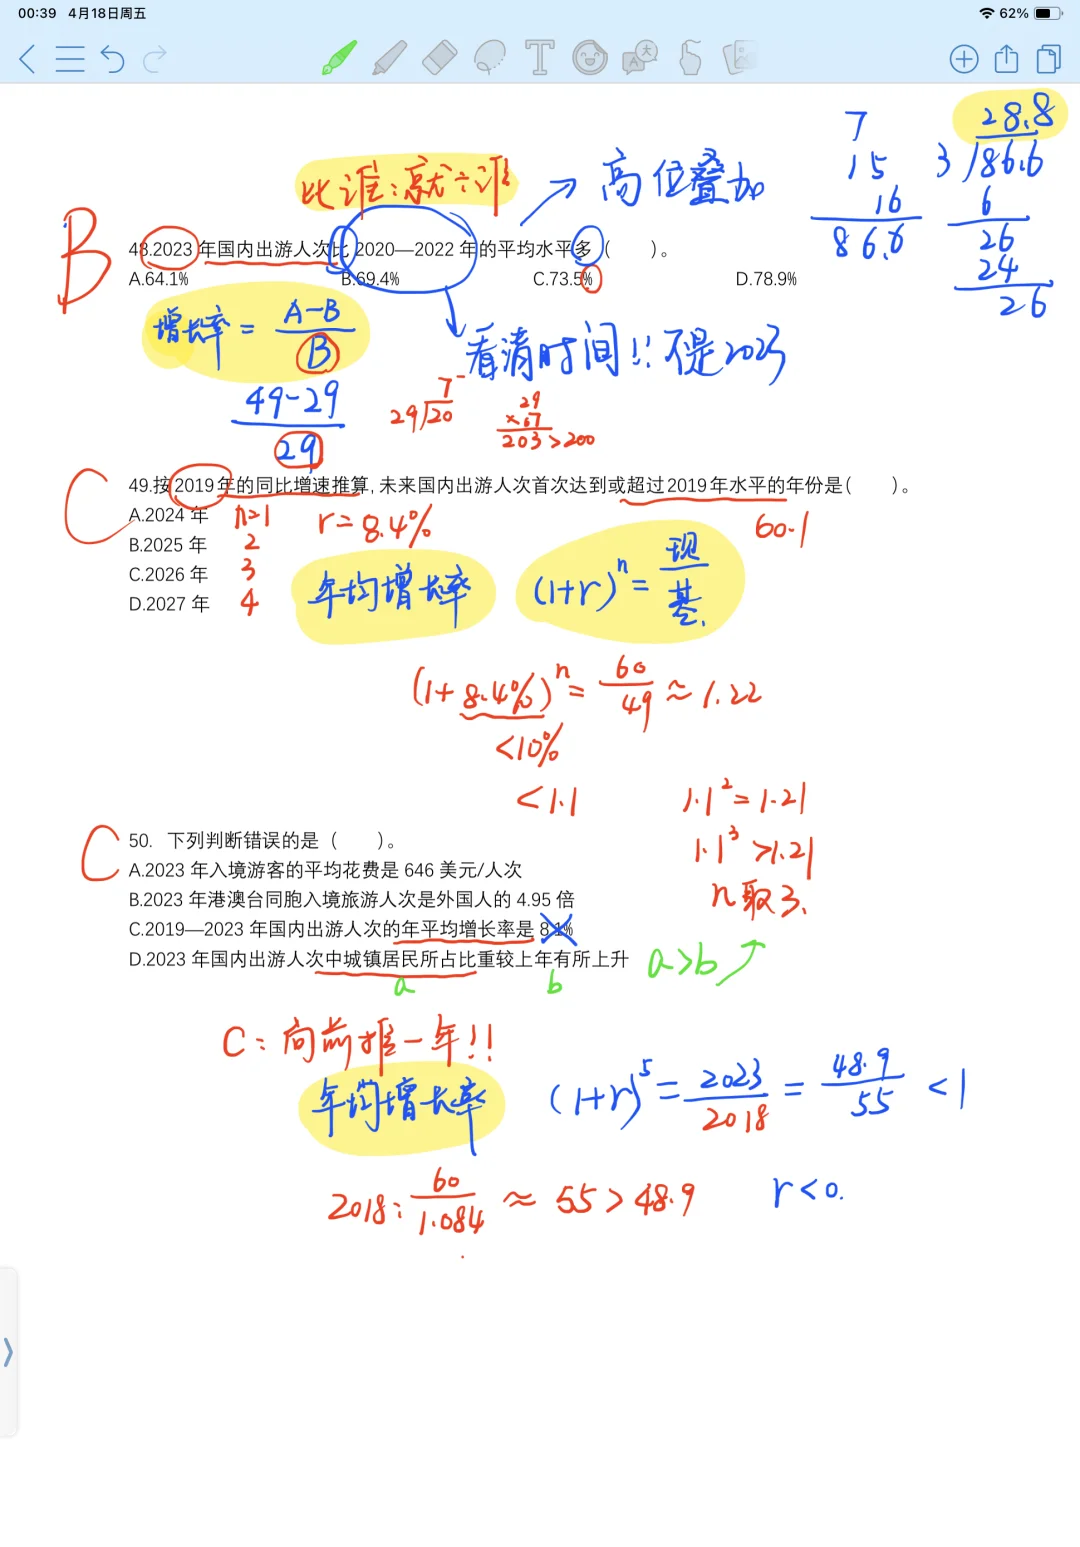 00:39 4月18日周五
62%
7
15
16
86.6
28.8
3 186.6
6
26
24
26
比谁:就÷谁
高位叠加
B
48.2023 年国内出游人次比 2020—2022 年的平均水平多（ ）。
A.64.1% B.69.4% C.73.5% D.78.9%
增长率 = A-B
B
看清时间!! 不是2023
49-29
29
7-
29 20
29
×.67
203>200
C
49.按 2019 年的同比增速推算, 未来国内出游人次首次达到或超过 2019 年水平的年份是( )。
60.1
A.2024 年 n=1 r=8.4%
B.2025 年 2
C.2026 年 3
D.2027 年 4
年均增长率
(1+r)^n = 现
基.
(1+8.4%)^n = 60
49 ≈ 1.22
<10%
<1.1
1.1^2=1.21
1.1^3>1.21
n取3.
C
50. 下列判断错误的是（ ）。
A.2023 年入境游客的平均花费是 646 美元/人次
B.2023 年港澳台同胞入境旅游人次是外国人的 4.95 倍
C.2019—2023 年国内出游人次的年平均增长率是 8.1%
D.2023 年国内出游人次中城镇居民所占比重较上年有所上升
a>b
a b
C: 向前推一年!!
年均增长率
(1+r)^5 = 2023
2018 = 48.9
55 <1
2018: 60
1.084 ≈ 55 > 48.9
r<0.